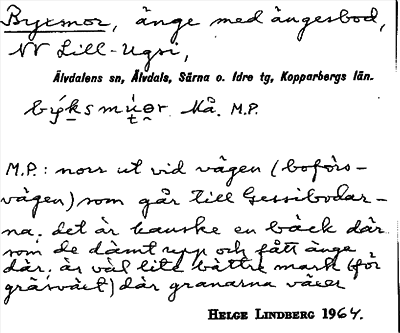 Byxmor, änge med ängesbod,
NV Lill-Ugsi,
Älvdalens sn, Älvdals, Särna o. Idre tg, Kopparbergs län.
Må. M.P.
M.P.: norr ut vid vägen (boförs-
vägen) som går till Gessibodar-
na. det är kanske en bäck där
som de dämt upp och fått änge
där. är väl lite bättre mark (för
gräsväxt) där granarna växer
HELGE LINDBERG 1964.